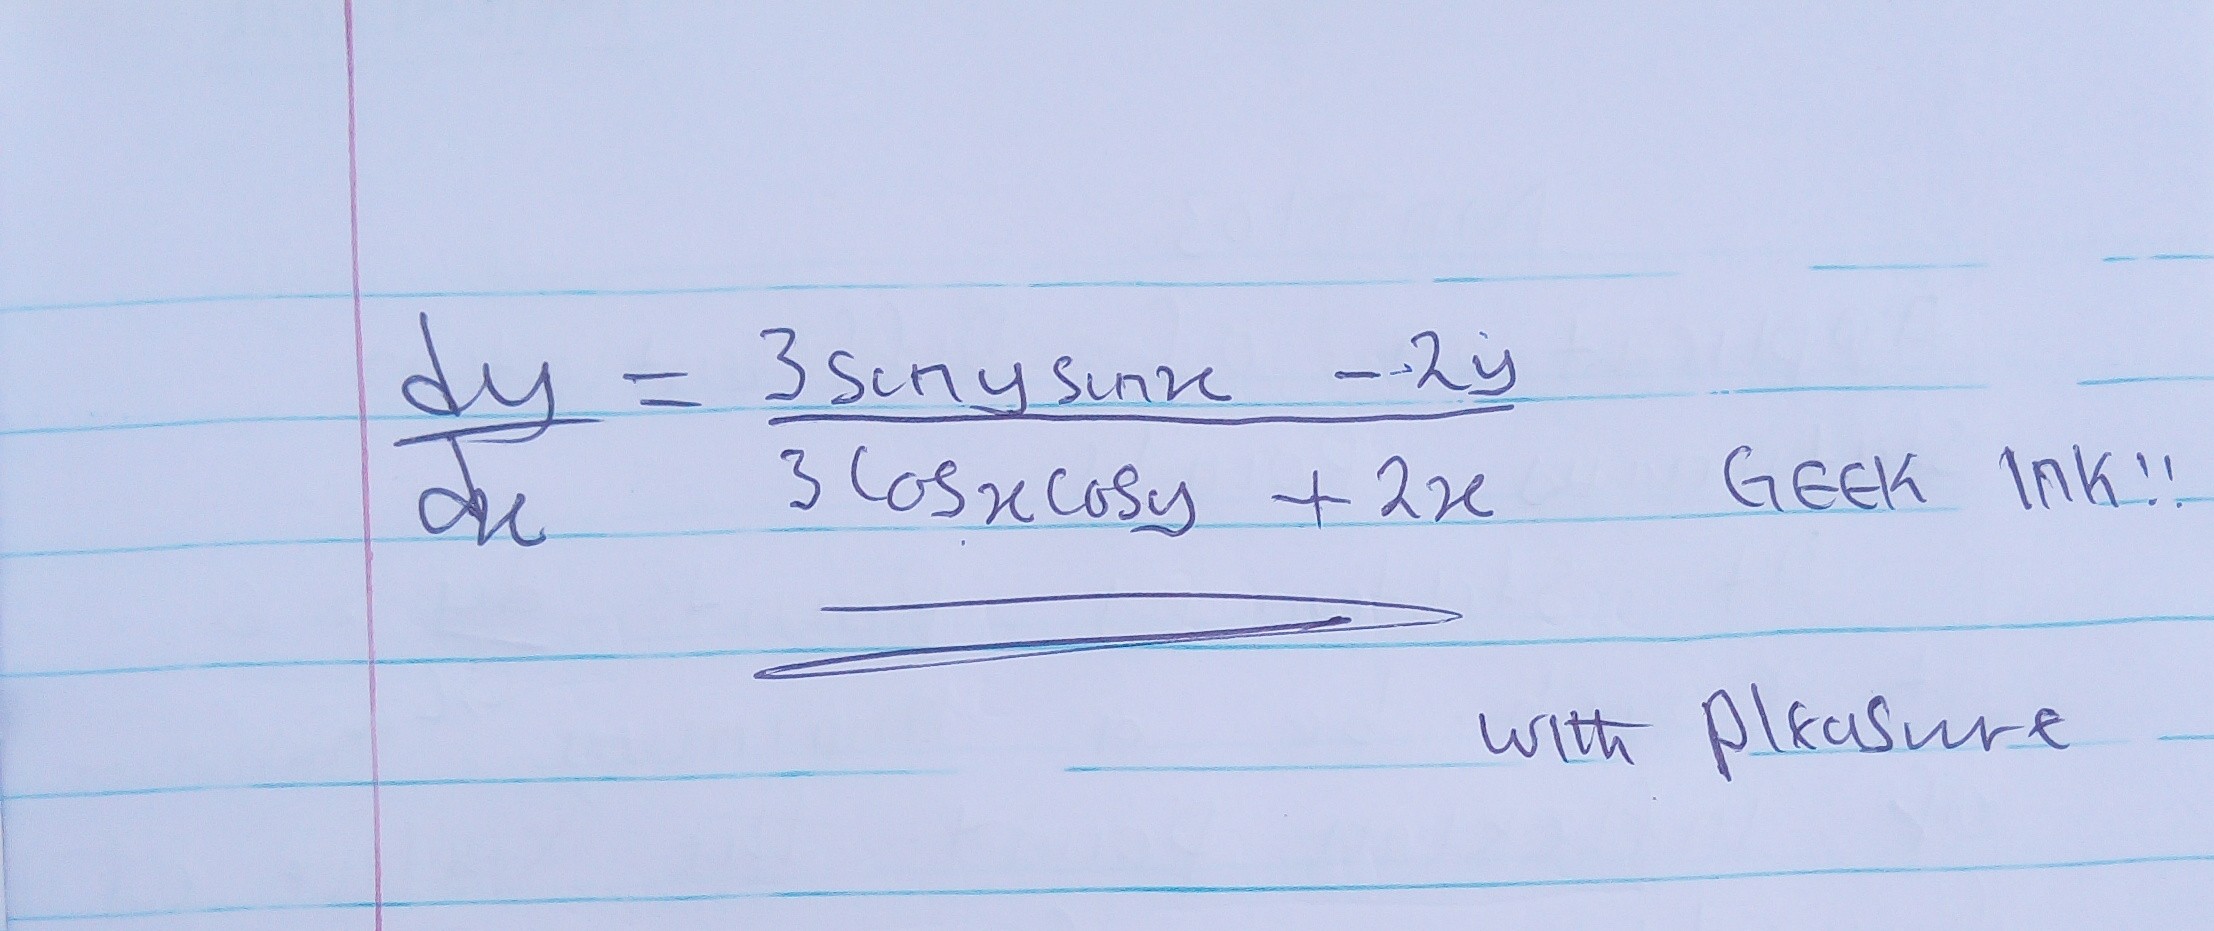 dy/dx = (3 siny sinx - 2y)/(3 Cosx Cosy + 2x)
GEEK INK!!
with pleasure